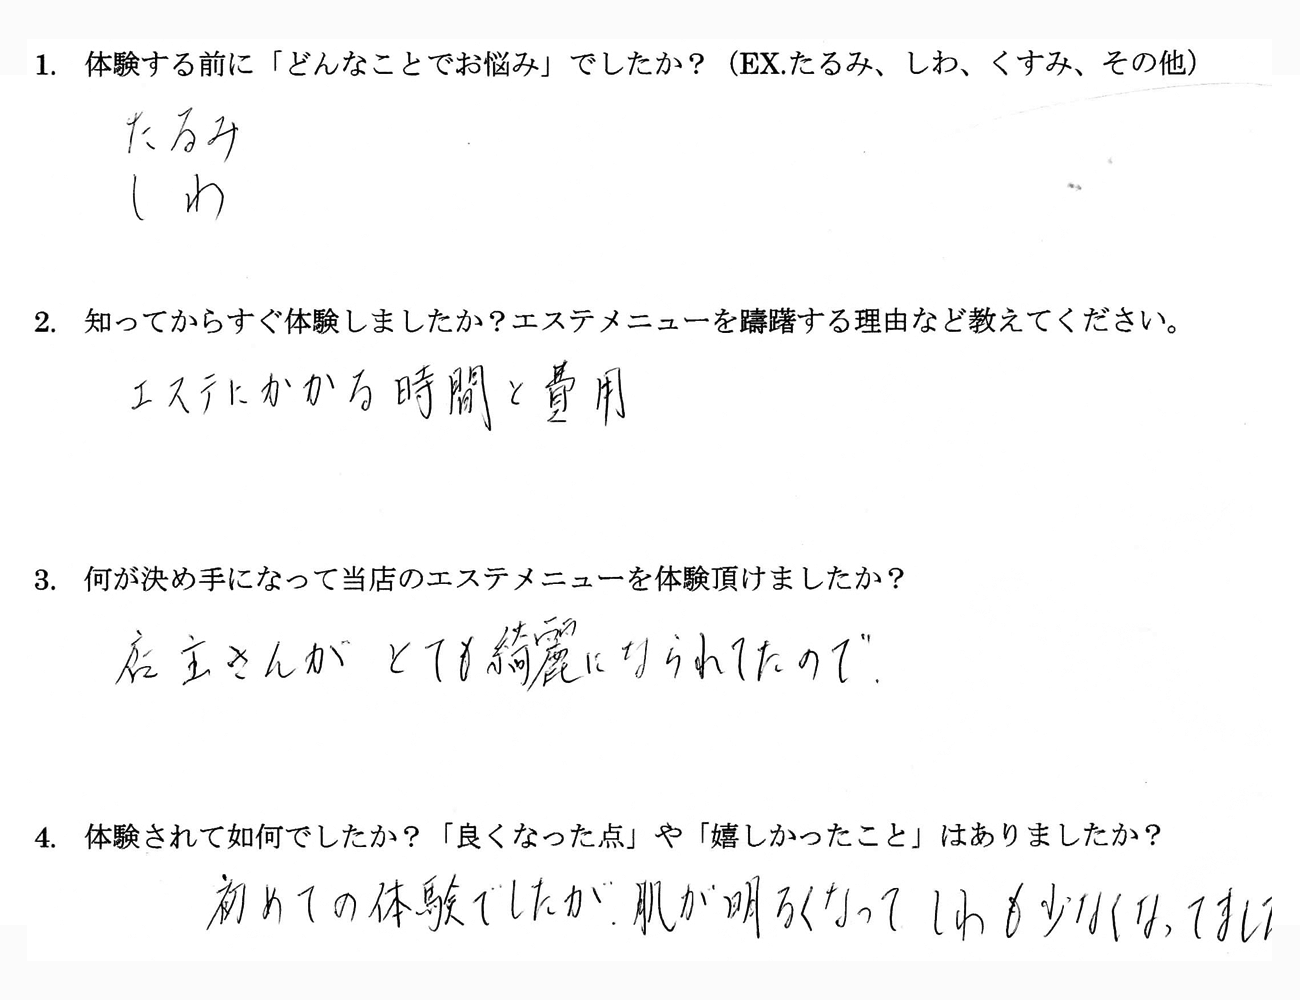 1. 体験する前に「どんなことでお悩み」でしたか？（EX.たるみ、しわ、くすみ、その他）
たるみ
しわ
2. 知ってからすぐ体験しましたか？エステメニューを躊躇する理由など教えてください。
エステにかかる時間と費用
3. 何が決め手になって当店のエステメニューを体験頂けましたか？
店主さんが とても綺麗になられてたので.
4. 体験されて如何でしたか？「良くなった点」や「嬉しかったこと」はありましたか？
初めての体験でしたが.肌が明るくなって しわも少なくなってまし